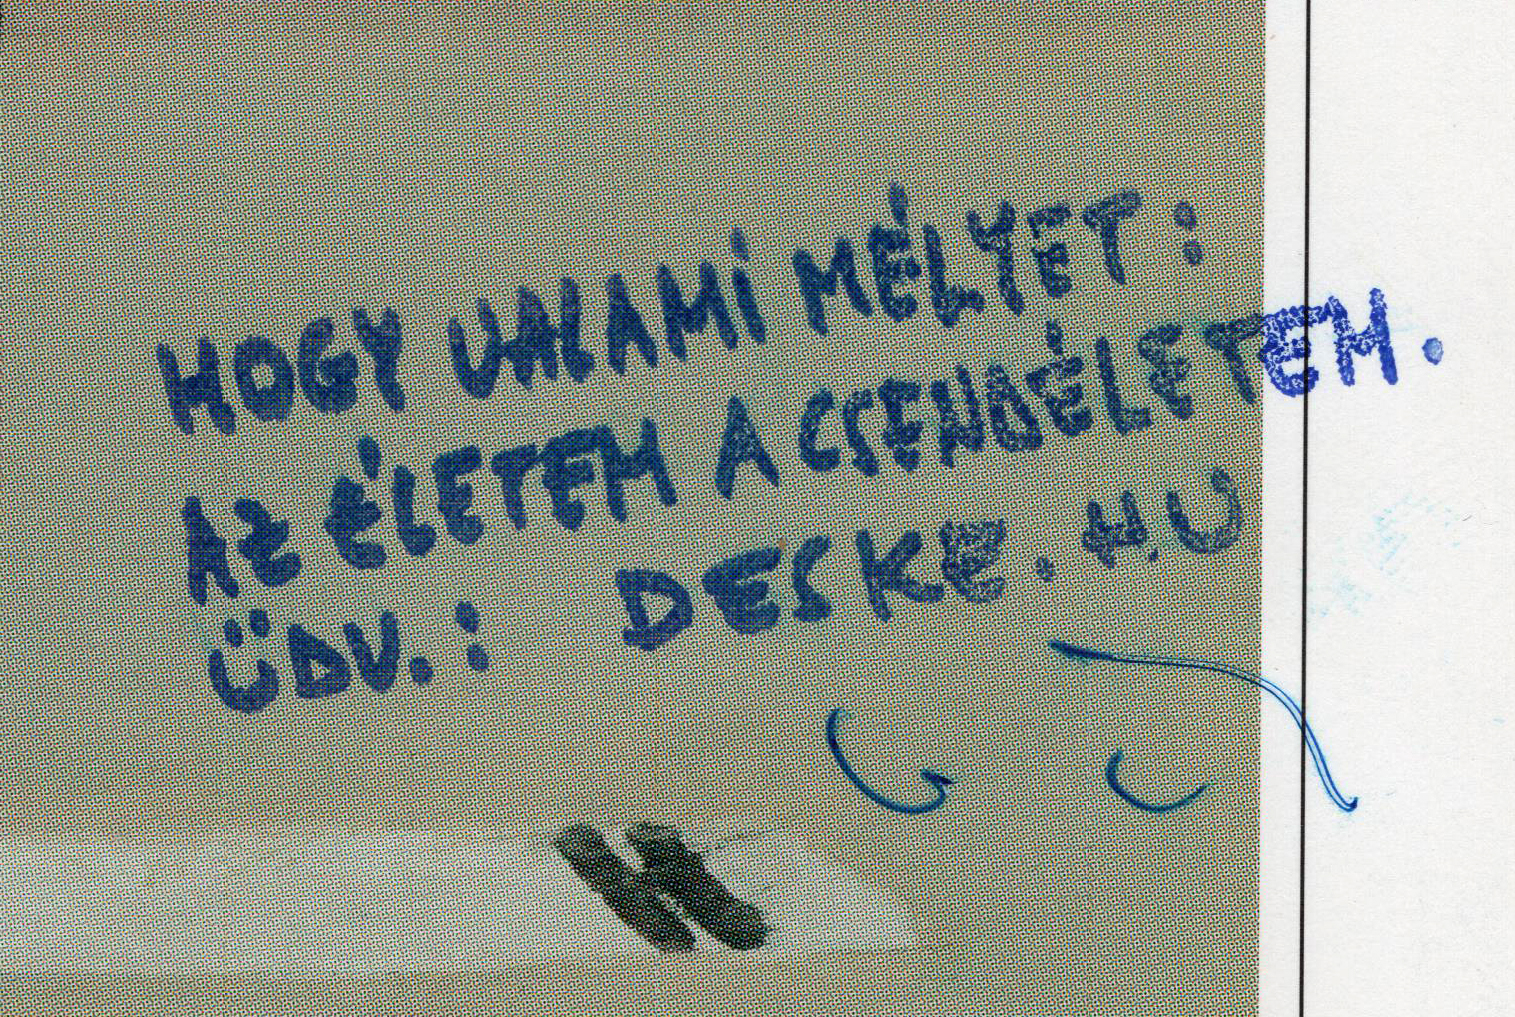 HOGY VALAMI MÉLYET:
AZ ÉLETEM A CSENDÉLETEM.
ÜDV.: DESKE.HU
H